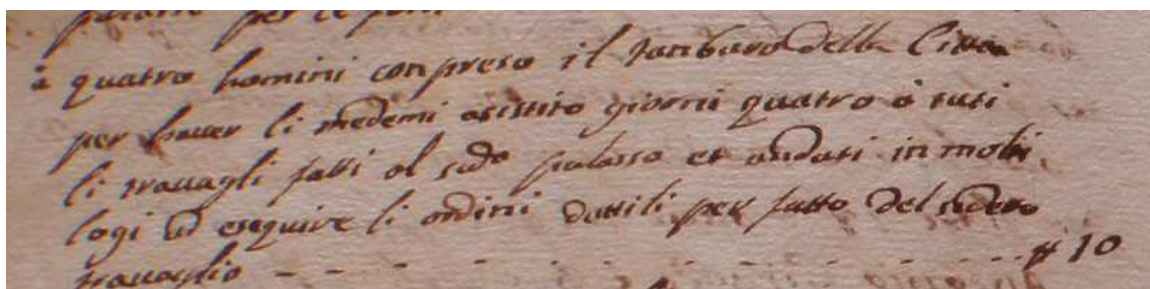 palasso per le
à quatro homini conpreso il tanburo della Citta
per hauer li medemi asistito giorni quatro à tuti
li trauagli fatti al sudo palasso et andati in molti
logi ad esequire li ordini dattili per fatto del sudeto
trauaglio - - - - - - - - - - - - # 10